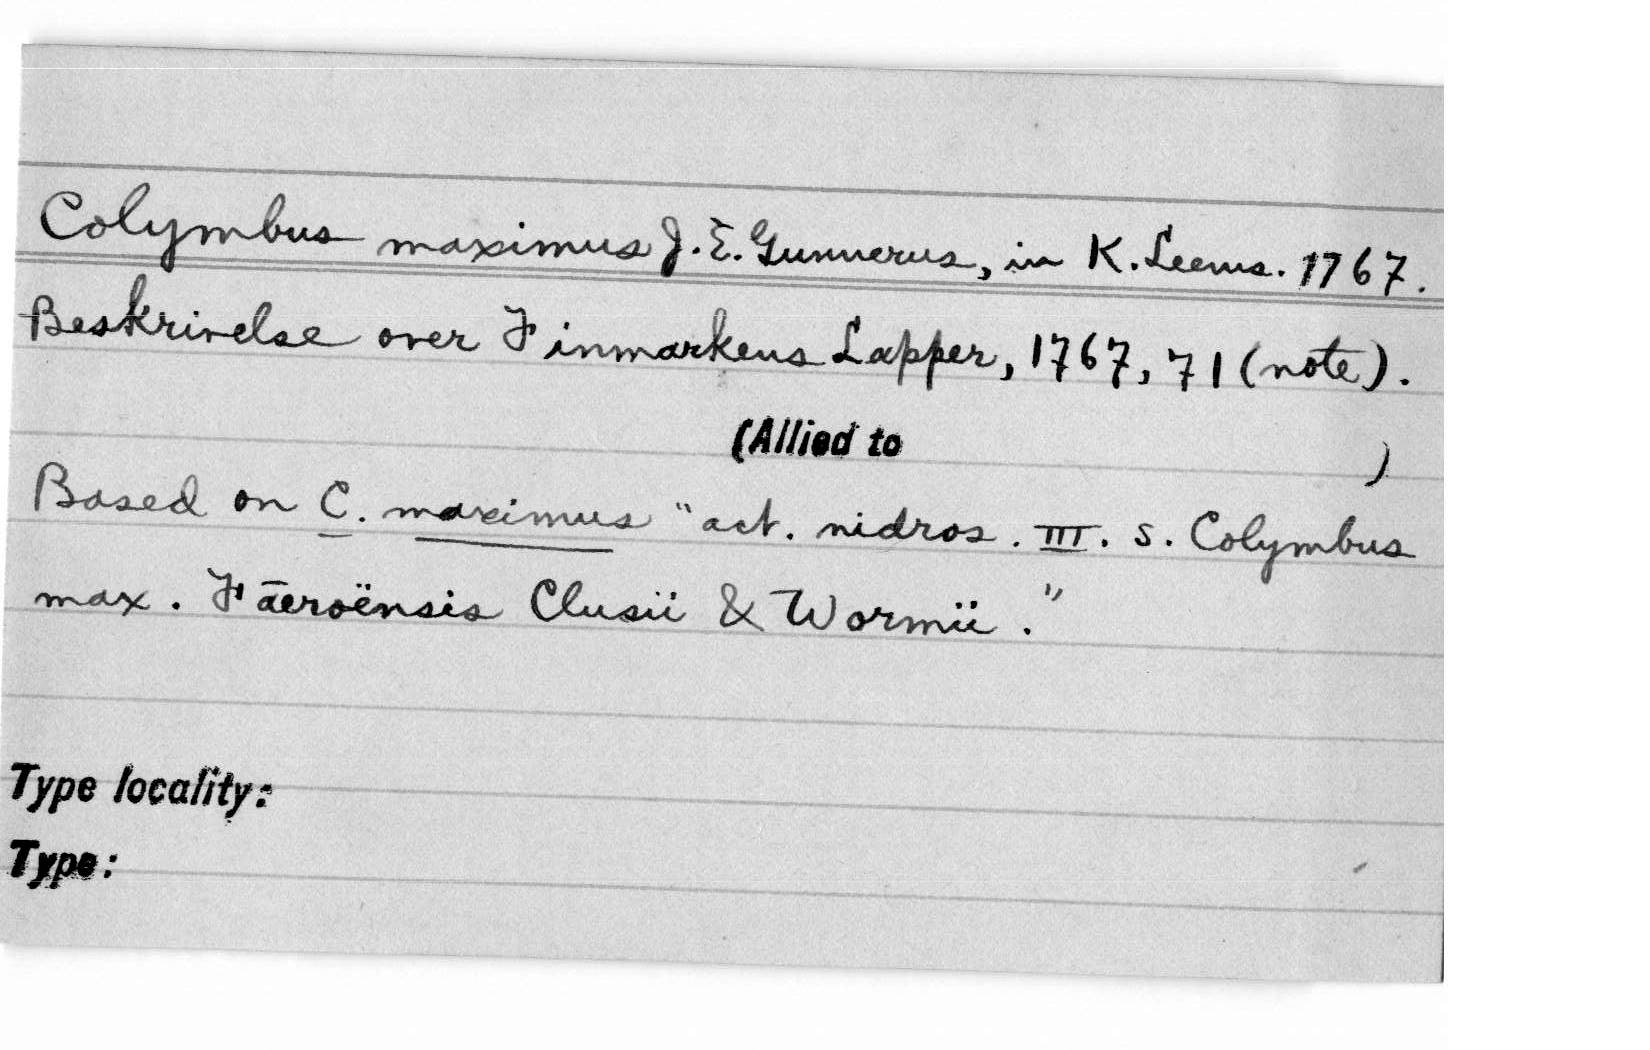 Colymbus maximus J. E. Gunnerus, in K. Leems. 1767.
Beskrivelse over Finmarkens Lapper, 1767, 71 (note).
(Allied to )
Based on C. maximus "act. nidros. III. s. Colymbus
max. Fāeroënsis Clusii & Wormii."
Type locality:
Type: